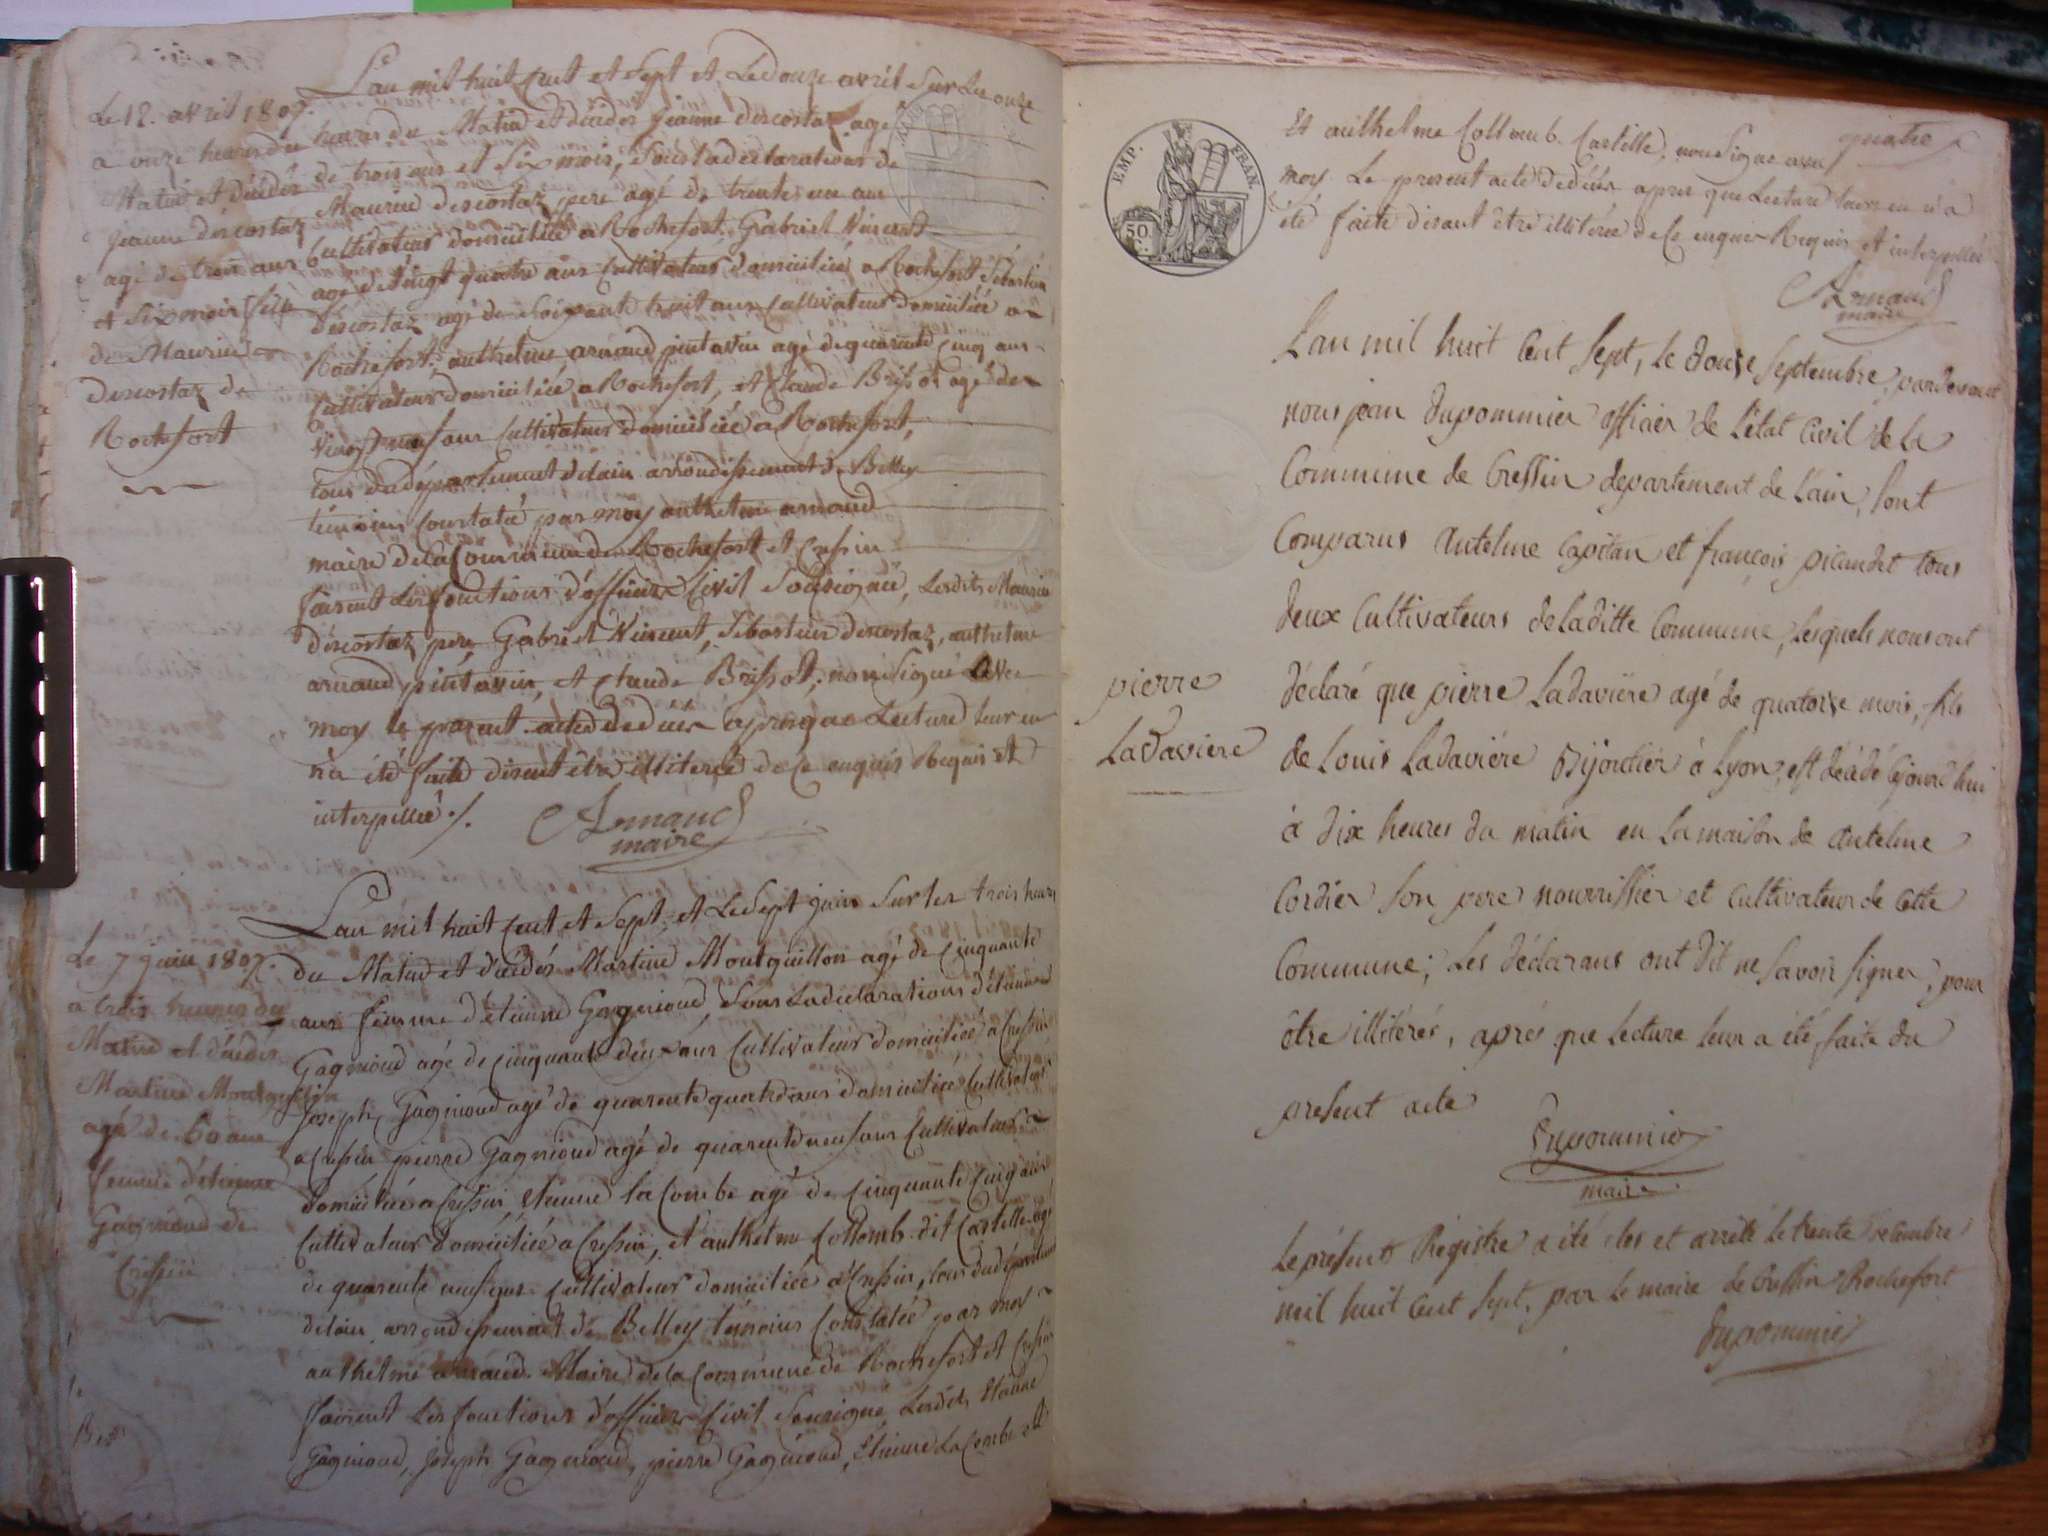 Le 12. avril 1807.
a onze heures du
Matin et décédés
jeanne descostaz
agé de trois ans
et Six mois fille
de Maurice
Descostaz de
Rochefort
L'an mil huit Cent et Sept et Ledouze avril Sur Les onze
heures du Matin est décédés jeanne descostaz agé
de trois ans et Six mois, Sous la declarations de
Maurice descostaz pere agé de trente un an
Cultivateur domicilié a Rochefort Gabriel Vincent
agé de vingt quatre ans Cultivateur domiciliée a Rochefort Sébastien
descostaz agé de Soixant huit ans Cultivateur domiciliée a
Rochefort, anthelme arnaud pintavin agé de quarante Cinq ans
Cultivateur domiciliée a Rochefort, et Claude Brissot agé de
vingt neuf ans Cultivateur domiciliée a Rochefort,
tous du département delain arrondissement de Belley
témoins Constatée par moy anthelme arnaud
maire de la Commune de Rochefort et Cressin
faisant Les fonctions d'officier Civil Soussignée, Lesdits Maurice
descostaz pere, Gabriet Vincent, Sébastien descostaz, anthelme
arnaud pintavin, et Claude Brissot, non Signé avec
moy le present acte de décés apres que Lecture Leur en
n'a été faite disent être illiterée de Ce enquis Requis et
interpellée ./.
Arnaud
maire
Le 7 juin 1807.
a trois heures du
Matin et décédés
Martine Montguillon
agé de 50 ans
femme d'étienne
Gagnioud de
Cressin
L'an mil huit Cent et Sept, et Le Sept juin Sur les trois heures
du Matin et décédés Martine Montguillon agé de Cinquante
ans femme d'étienne Gagnioud, Sous La declarations d'étienne
Gagnioud agé de Cinquante deux ans Cultivateur domiciliée a Cressin
Joseph Gagnioud agé de quarente quatre ans domiciliée Cultivateur
a Cressin pierre Gagnioud agé de quarente neuf ans Cultivateur
domiciliée a Cressin, étienne la Combe agé de Cinquante Cinq ans
Cultivateur domiciliée a Cressin, et anthelme Collomb dit Castille agé
de quarente neuf ans Cultivateur domiciliée a Cressin, tous du département
delain arrondissement de Belley témoins Constatée par moy
anthelme arnaud Maire de la Commune de Rochefort et Cressin
faisent Les fonctions d'officier Civil Soussigné, Lesdits Etienne
Gagnioud, Joseph Gagnioud, pierre Gagnioud, Etienne La Combe et
quatre
EMP. FRAN.
50.
C.
Et anthelme Collomb Castille, non Signé avec
moy Le present acte de décés apres que Lecture Leurs en n'a
été faite disant être illiterée de Ce enquis Requis et interpellée
Arnaud
maire
L'an mil huit Cent Sept, le douze Septembre, pardevant
nous jean Dupommier officier de L'état Civil de La
Commune de Cressin departement de L'ain, sont
Comparus Antelme Capitan et françois picandet tous
deux Cultivateurs de Laditte Commune, Lesquels nous ont
déclaré que pierre Ladavière agé de quatorze mois, fils
de Louis Ladavière Bijoutier à Lyon, est décédé cejourd'hui
à dix heures du matin en La maison de Antelme
Cordier son pere nourrissier et Cultivateur de Cette
Commune; Les déclarans ont dit ne savoir signer, pour
être illitérés, après que Lecture leur a été faite du
present acte
Dupommier
maire
pierre
Ladavière
Le présent Régistre a été clos et arrêté le trente décembre
mil huit Cent Sept, par le maire de Cressin Rochefort
Dupommier